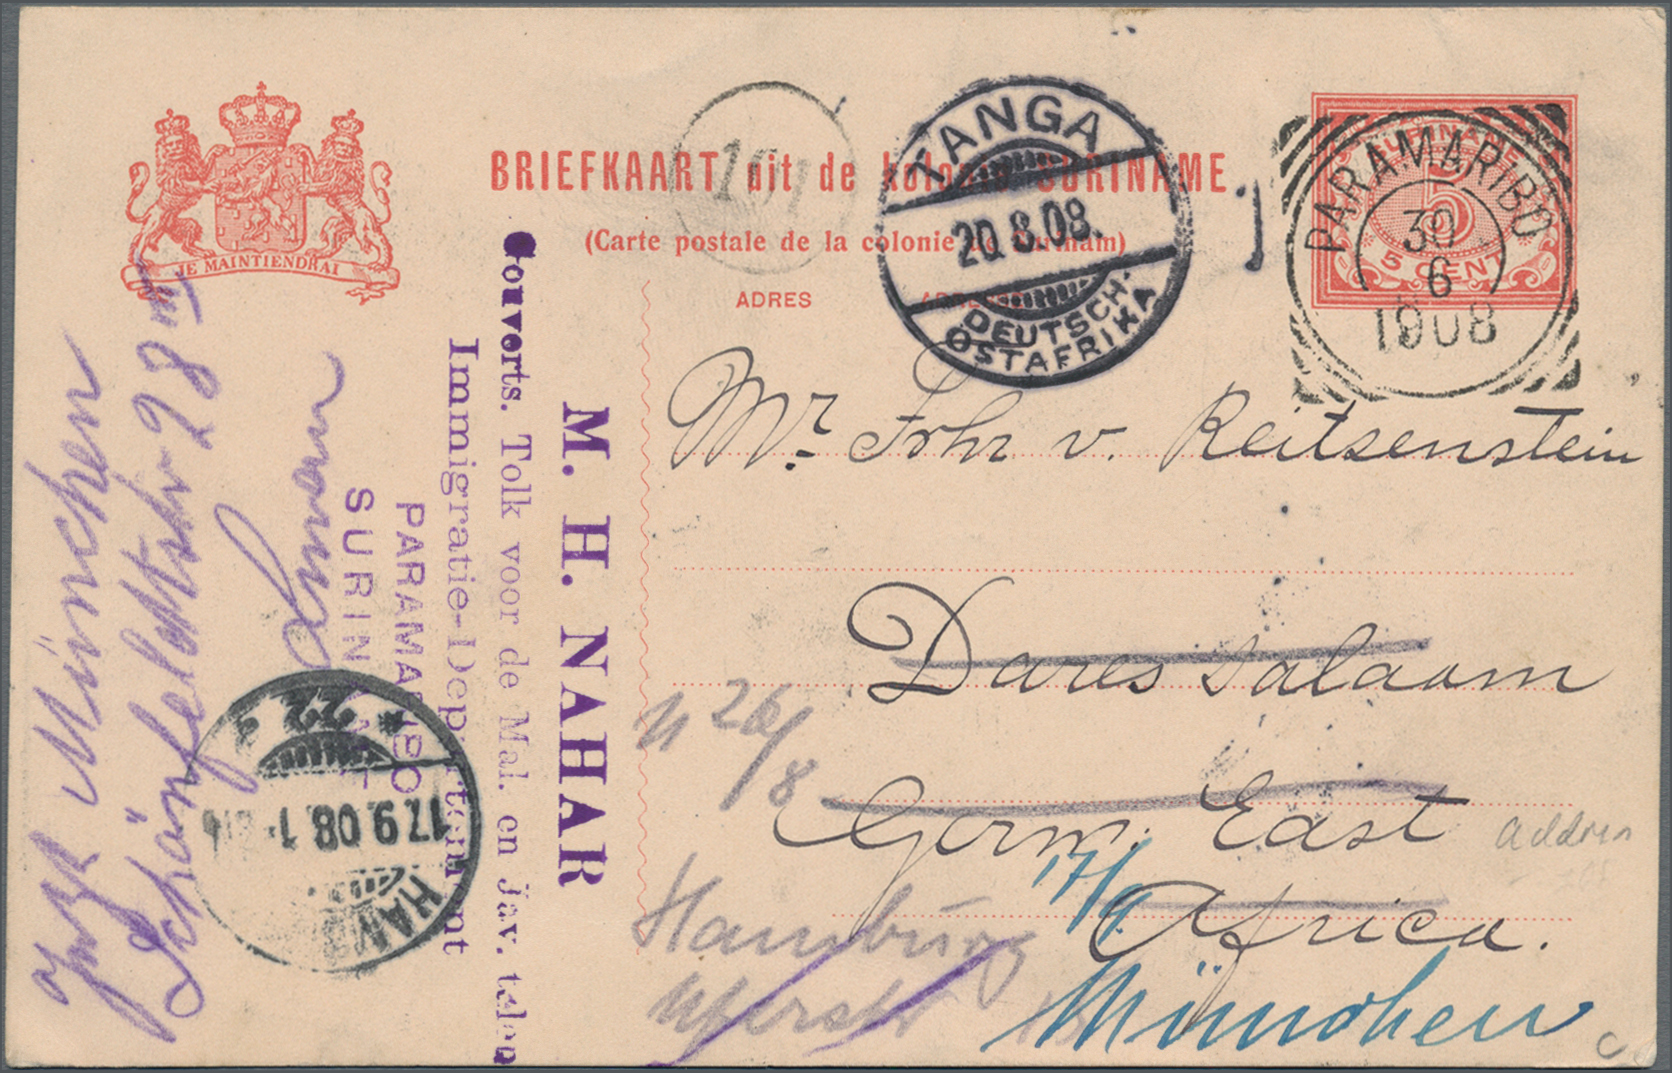 BRIEFKAART uit de kolonie SURINAME
(Carte postale de la colonie de Surinam)
ADRES
JE MAINTIENDRAI
101
TANGA
20.8.08.
DEUTSCH-
OSTAFRIKA
1
SURINAME
5
5 CENT
PARAMARIBO
30
6
1908
Mr. Frhr v. Reitsenstein
Dares salaam
Germ. East
Africa.
M. H. NAHAR
Gouverts. Tolk voor de Mal. en Jav. talen
Immigratie-Departement
PARAMARIBO
SURINAME
26/8
Hamburg
Uferstr
17/9.
München
München
Schönfeldstr 28
17.9.08.1
HAMB